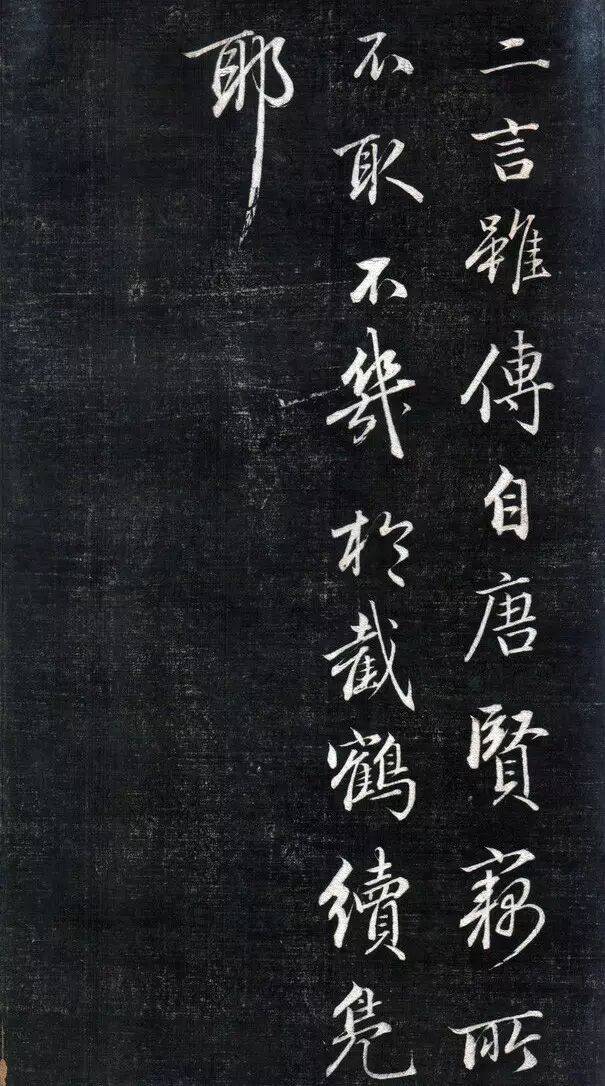 二言雖傳自唐賢竊所
不取不幾於截鶴續凫
耶